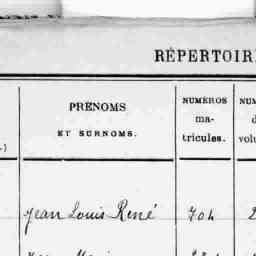 RÉPERTOIRE
PRÉNOMS
ET SURNOMS.
NUMÉROS
ma-
tricules.
Jean Louis René 704